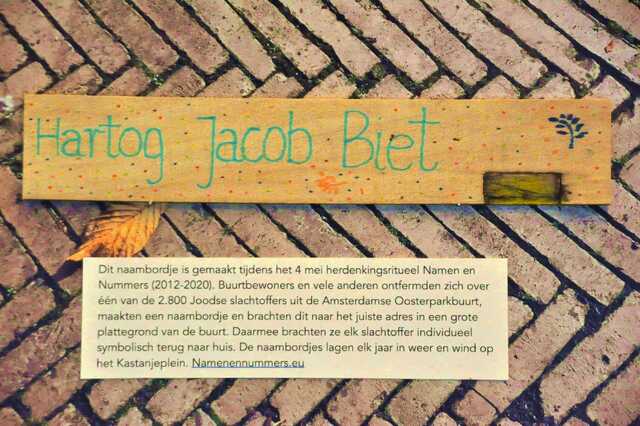 Hartog Jacob Biet
Dit naambordje is gemaakt tijdens het 4 mei herdenkingsritueel Namen en
Nummers (2012-2020). Buurtbewoners en vele anderen ontfermden zich over
één van de 2.800 Joodse slachtoffers uit de Amsterdamse Oosterparkbuurt,
maakten een naambordje en brachten dit naar het juiste adres in een grote
plattegrond van de buurt. Daarmee brachten ze elk slachtoffer individueel
symbolisch terug naar huis. De naambordjes lagen elk jaar in weer en wind op
het Kastanjeplein. Namenennummers.eu